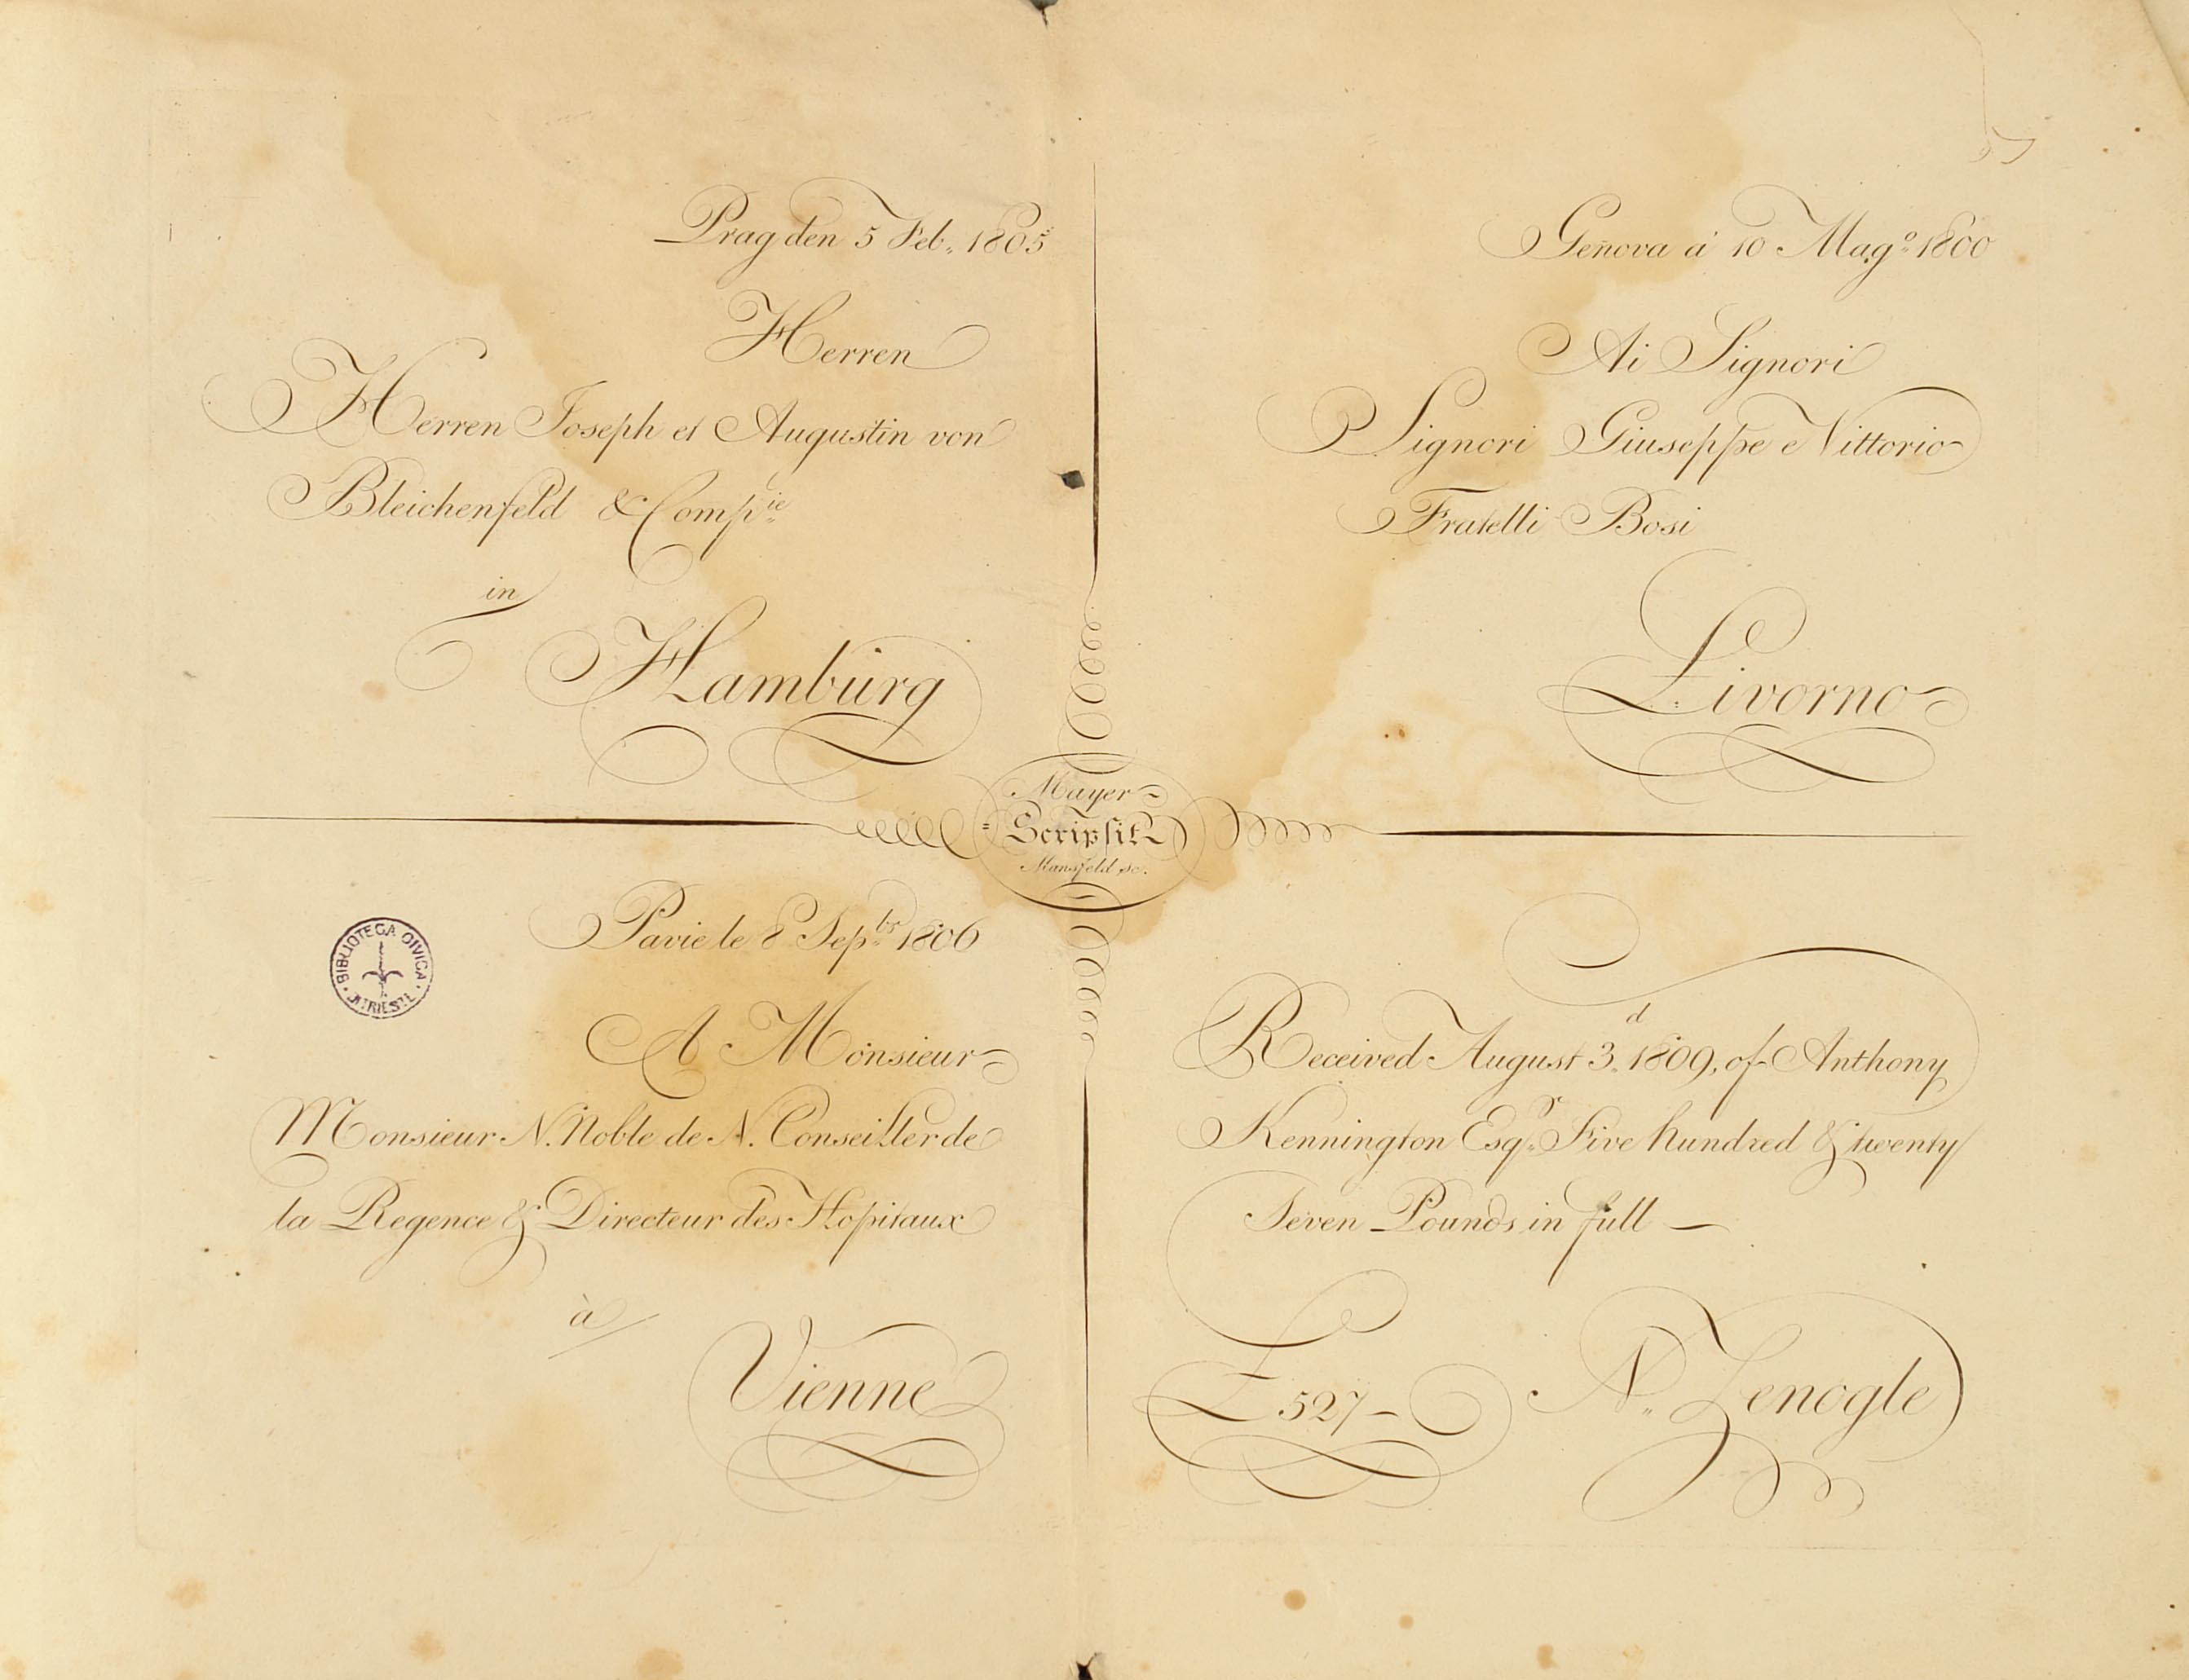 Prag den 5 Feb. 1805
Herren
Herren Joseph et Augustin von
Bleichenfeld & Comp.ie
in
Hamburg
Genova a' 10 Mag.o 1800
Ai Signori
Signori Giuseppe e Vittorio
Fratelli Bosi
Livorno
Mayer
Scripsit
Mansfeld sc.
Pavie le 8 Sep.br 1806
A Monsieur
Monsieur N. Noble de N. Conseiller de
la Regence & Directeur des Hopitaux
à
Vienne
BIBLIOTECA CIVICA
TRIESTE
Received August 3.d 1809, of Anthony
Kennington Esq.r Five hundred & twenty
Seven Pounds in full —
£ 527 –
N. Zenogle